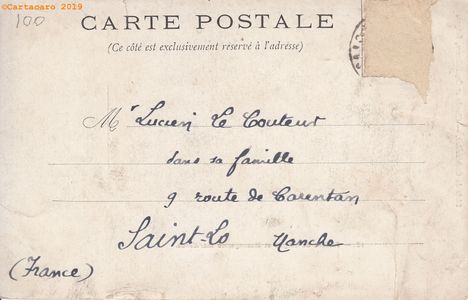 ©Cartaoaro 2019
100
CARTE POSTALE
(Ce côté est exclusivement réservé à l'adresse)
Mr Lucien Le Couteur
dans sa famille
9 route de Carentan
Saint-Lo Manche
(France)